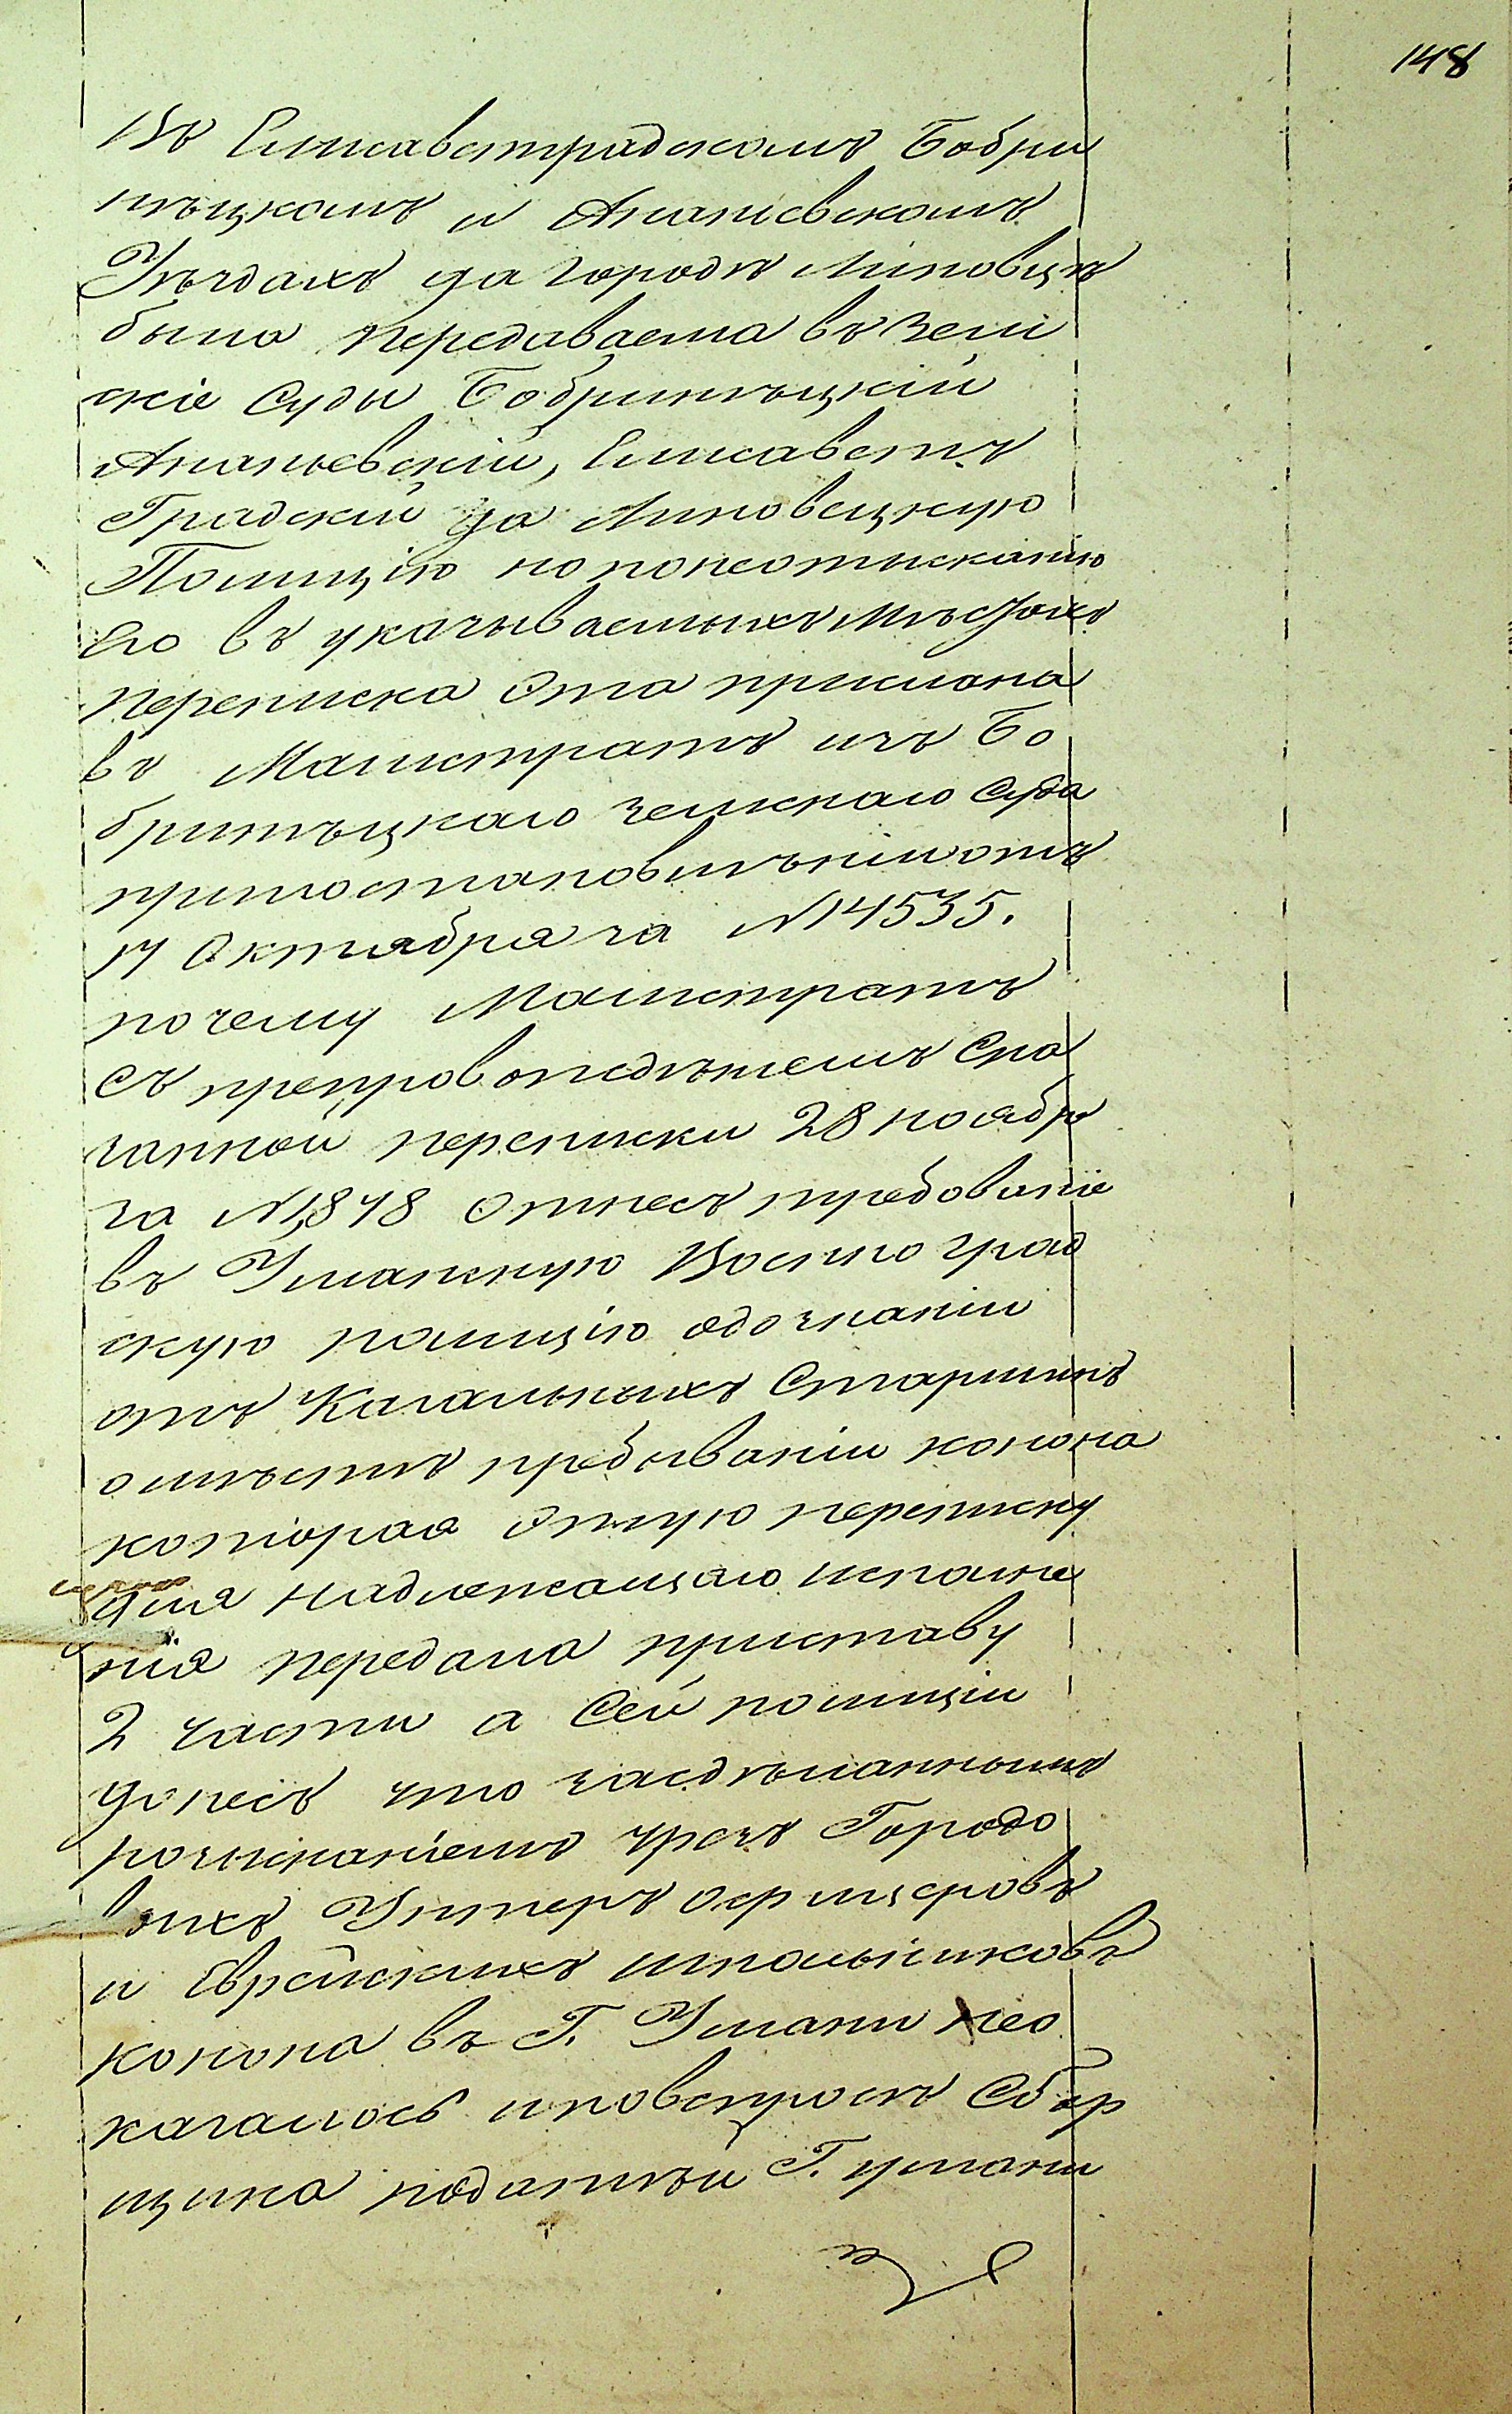 148
въ Елисаветградскомъ Бобри
нѣцкомъ и Ананіевскомъ
Уѣздахъ да городѣ Линовцѣ
была передаваема въ Зем
скіе Суды Бобринѣцкій
Ананьевскій, Елисаветъ
Градскій да Линовецкую
Полицію но понеотысканію
его въ указываемыхъ мѣстахъ
переписка эта прислана
въ Магистратъ изъ Бо
бринѣцкаго земскаго Суда
припостановленіи отъ
17 Октября за №14535.
почему Магистратъ
съ препровожденіемъ Ска
занной переписки 28 ноября
за №1,878 отнесъ требованіе
въ Уманскую Военно град
скую полицію одознаніи
отъ Кагальныхъ Старшинъ
омѣстѣ пребываніи конона
которая этую переписку
для надлежащаго исполне
нія передала приставу
2 части а Сей полиціи
донесъ что засдѣланнымъ
розысканіемъ чрезъ Городо
выхъ Унтеръ офицеровъ
и Еврейскихъ школьниковъ
конона въ Г. Умани нео
казалось иповспросѣ Сбор
щика податѣй Г. умани